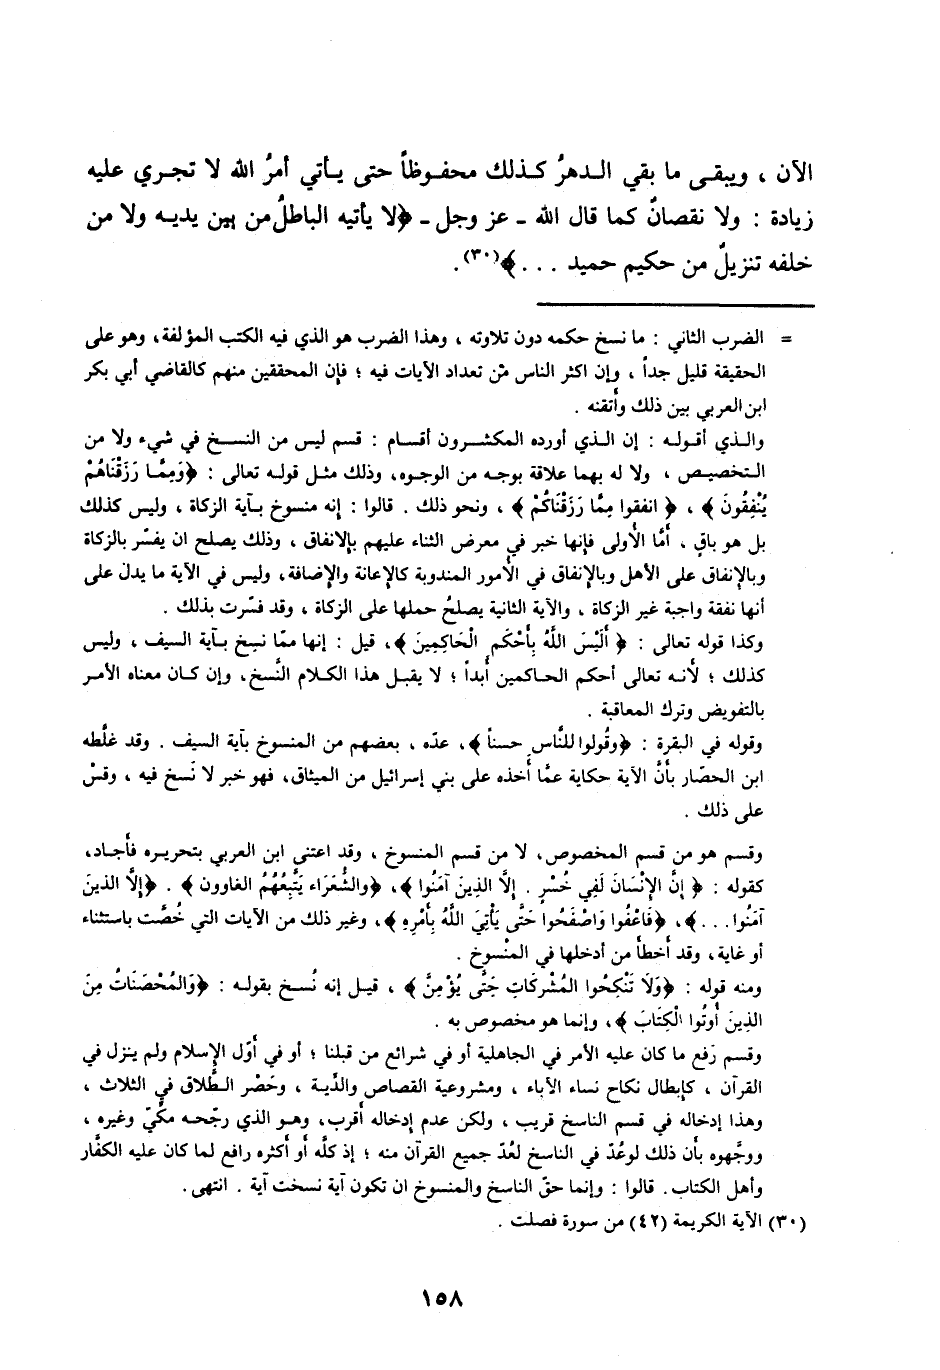 الآن ، ويبقى ما بقي الدهرُ كذلك محفوظاً حتى يأتي أمرُ الله لا تجري عليه
زيادة : ولا نقصانٌ كما قال الله ـ عز وجل ـ ﴿لا يأتيه الباطلُ من بين يديه ولا من
خلفه تنزيلٌ من حكيم حميد . . . ﴾(٣٠).
= الضرب الثاني : ما نسخ حكمه دون تلاوته ، وهذا الضرب هو الذي فيه الكتب المؤلفة، وهو على
الحقيقة قليل جداً ، وإن اكثر الناس مْن تعداد الآيات فيه ؛ فإن المحققين منهم كالقاضي أبي بكر
ابن العربي بين ذلك وأتقنه .
والذي أقوله : إن الذي أورده المكثرون أقسام : قسم ليس من النسخ في شيء ولا من
التخصيص ، ولا له بهما علاقة بوجه من الوجوه، وذلك مثل قوله تعالى : ﴿وَمِمَّا رَزَقْنَاهُمْ
يُنْفِقُونَ ﴾ ، ﴿ انفقوا مِمَّا رَزَقْنَاكُمْ ﴾ ، ونحو ذلك . قالوا : إنه منسوخ بآية الزكاة ، وليس كذلك
بل هو باقٍ ، أمَّا الأولى فإنها خبر في معرض الثناء عليهم بالانفاق ، وذلك يصلح ان يفسّر بالزكاة
وبالإنفاق على الأهل وبالإنفاق في الأمور المندوبة كالإعانة والإضافة، وليس في الآية ما يدل على
أنها نفقة واجبة غير الزكاة ، والآية الثانية يصلحُ حملها على الزكاة ، وقد فسّرت بذلك .
وكذا قوله تعالى : ﴿ أَلَيْسَ اللَّهُ بِأَحْكَمِ الْحَاكِمِينَ ﴾، قيل : إنها ممّا نسخ بآية السيف ، وليس
كذلك ؛ لأنه تعالى أحكم الحاكمين أبداً ؛ لا يقبل هذا الكلام النَّسخ، وإن كان معناه الأمر
بالتفويض وترك المعاقبة .
وقوله في البقرة : ﴿وقُولوا للنَّاس حسناً ﴾، عدّه ، بعضهم من المنسوخ بآية السيف . وقد غلَّطه
ابن الحصّار بأنَّ الآية حكاية عمَّا أخذه على بني إسرائيل من الميثاق، فهو خبر لا نَسخ فيه ، وقسْ
على ذلك .
وقسم هو من قسم المخصوص، لا من قسم المنسوخ ، وقد اعتنى ابن العربي بتحريره فأجاد،
كقوله : ﴿ إِنَّ الإنْسَانَ لَفِي خُسْرٍ . إلَّا الذِينَ آمَنُوا ﴾، ﴿والشُّعَرَاء يَتَّبِعُهُمُ الغاوون ﴾ . ﴿إلَّا الذينَ
آمَنُوا. . . ﴾، ﴿فَاعْفُوا وَاصْفَحُوا حَتَّى يَأْتِيَ اللَّهُ بِأَمْرِهِ ﴾، وغير ذلك من الآيات التي خُصَّت باستثناء
أو غاية، وقد أخطأ من أدخلها في المنْسوخ .
ومنه قوله : ﴿وَلَا تَنْكِحُوا المُشْركَاتِ حَتَّى يُؤْمِنَّ ﴾ ، قيل إنه نُسخ بقوله : ﴿وَالمُحْصَنَاتُ مِنَ
الذِينَ أُوتُوا الْكِتَابَ ﴾، وإنما هو مخصوص به .
وقسم رَفع ما كان عليه الأمر في الجاهلية أو في شرائع من قبلنا ؛ أو في أوّل الإسلام ولم ينزل في
القرآن ، كإبطال نكاح نساء الآباء ، ومشروعية القصاص والدِّية ، وحَصْر الطَّلاق في الثلاث ،
وهذا إدخاله في قسم الناسخ قريب ، ولكن عدم إدخاله أقرب، وهو الذي رجّحه مكّيّ وغيره ،
ووجَّهوه بأن ذلك لوعُدّ في الناسخ لعُدّ جميع القرآن منه ؛ إذ كلَّه أو أكثره رافع لما كان عليه الكفَّار
وأهل الكتاب. قالوا : وإنما حقّ الناسخ والمنسوخ ان تكون آية نسخت آية . انتهى.
(٣٠) الآية الكريمة (٤٢) من سورة فصلت .
١٥٨